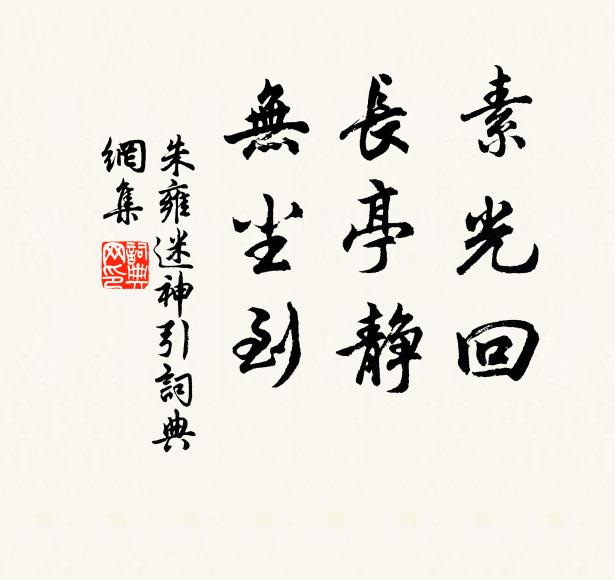 素光回
長亭靜
無尘到
朱雍迷神引詞典
網集
詞典
网印